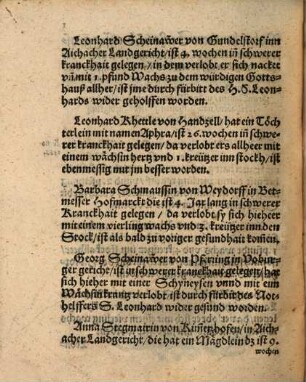 Leonhard Scheinawer von Gundelstorf inn
Aichacher Landgericht/ ist 4. wochen in schwerer
kranckheit gelegen / in dem verlobt er sich nacket
vñ mit 1. pfund Wachs zu dem würdigen Gotts-
hauß allher/ ist jme durch fürbitt des H. S. Leon-
hards wider geholffen worden.
Leonhard Khettle von Handzell/ hat ein Töch
terlein mit namen Aphra/ ist 26. wochen in schwe-
rer kranckheit gelegen/ da verlobt ers allheer mit
einem wächsin hertz vnd 1. kreützer inn stockh/ ist
ebenmessig mit jm besser worden.
Barbara Schmaussin von Weydorff in Bet-
messer Hofmarckt die ist 4. Jar lang in schwerer
Kranckhait gelegen / da verlobt sy sich hieheer
mit einem vierling wachs vnd 3. kreützer inn den
Stock/ ist als bald zu voriger gesundhait komen.
Georg Scheinawer von Pferiing in Vobur-
ger gericht/ ist in schwerer kranckhait gelegen/ hat
sich hieher mit einer Schyneysen vnnd mit ein
Wächsin krantz verlobt/ ist durch fürbitt des Not-
helffers S. Leonhard wider gesund worden.
Anna Stegmairin von Künetzhofen/ in Aich-
acher Landgericht/ die hat ein Mägdlein dz ist 9.
wochen